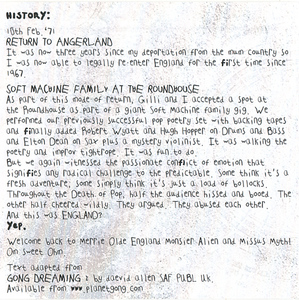 HISTORY:
10th Feb. '71
RETURN TO ANGERLAND
It was now three years since my deportation from the mum country so
I was now able to legally re-enter England for the first time since
1967.
SOFT MACHINE FAMILY AT THE ROUNDHOUSE
As part of this mode of return, Gilli and I accepted a spot at
the Roundhouse as part of a giant Soft Machine family gig. We
performed our previously successful pop poetry set with backing tapes
and finally added Robert Wyatt and Hugh Hopper on Drums and Bass
and Elton Dean on Sax plus a mystery violinist. It was walking the
poetry and improv tightrope. It was fun to do.
But we again witnessed the passionate conflict of emotion that
signifies any radical challenge to the predictable. Some think it's a
fresh adventure; some simply think it's just a load of bollocks.
Throughout the Death of Pop, half the audience hissed and booed. The
other half cheered wildly. They argued. They abused each other.
And this was ENGLAND?
Yep.
Welcome back to Merrie Olde England Monsier Alien and Missus Myth!
Oh Sweet Ohm
Text adapted from
GONG DREAMING 2 by daevid allen SAF PUBL uk
Available from www.planetgong.com